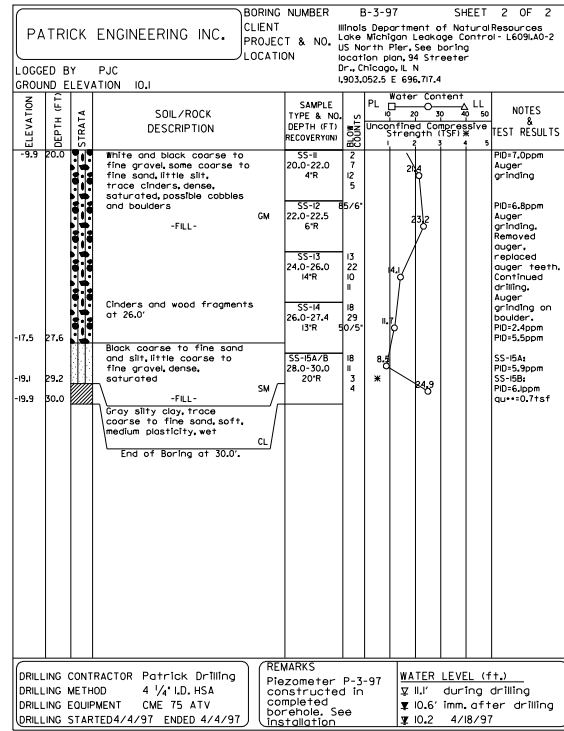 PATRICK ENGINEERING INC.
BORING NUMBER B-3-97 SHEET 2 OF 2
CLIENT Illinois Department of Natural Resources
PROJECT & NO. Lake Michigan Leakage Control - L6091.A0-2
LOCATION US North Pier, See boring
location plan, 94 Streeter
Dr., Chicago, IL N
1,903,052.5 E 696,717.4
LOGGED BY PJC
GROUND ELEVATION 10.1
ELEVATION
DEPTH (FT)
STRATA
SOIL/ROCK
DESCRIPTION
SAMPLE
TYPE & NO.
DEPTH (FT)
RECOVERY(IN)
BLOW
COUNTS
Water Content
PL LL
10 20 30 40 50
Unconfined Compressive
Strength (TSF) ✱
1 2 3 4 5
NOTES
&
TEST RESULTS
-9.9 20.0
White and black coarse to
fine gravel, some coarse to
fine sand, little silt,
trace cinders, dense,
saturated, possible cobbles
and boulders
GM
-FILL-
Cinders and wood fragments
at 26.0'
SS-11
20.0-22.0
4"R
2
7
12
5
21.4
PID=7.0ppm
Auger
grinding
SS-12
22.0-22.5
6"R
85/6"
23.2
PID=6.8ppm
Auger
grinding.
Removed
auger,
replaced
auger teeth.
Continued
drilling.
Auger
grinding on
boulder.
PID=2.4ppm
PID=5.5ppm
SS-13
24.0-26.0
14"R
13
22
10
11
14.1
SS-14
26.0-27.4
13"R
18
29
50/5"
11.7
-17.5 27.6
Black coarse to fine sand
and silt, little coarse to
fine gravel, dense,
saturated
SM
-FILL-
SS-15A/B
28.0-30.0
20"R
18
11
3
4
8.5
✱
24.9
SS-15A:
PID=5.9ppm
SS-15B:
PID=6.1ppm
qu**=0.7tsf
-19.1 29.2
-19.9 30.0
Gray silty clay, trace
coarse to fine sand, soft,
medium plasticity, wet
CL
End of Boring at 30.0'.
DRILLING CONTRACTOR Patrick Drilling
DRILLING METHOD 4 1/4" I.D. HSA
DRILLING EQUIPMENT CME 75 ATV
DRILLING STARTED 4/4/97 ENDED 4/4/97
REMARKS
Piezometer P-3-97
constructed in
completed
borehole. See
installation
WATER LEVEL (ft.)
11.1' during drilling
10.6' imm. after drilling
10.2 4/18/97